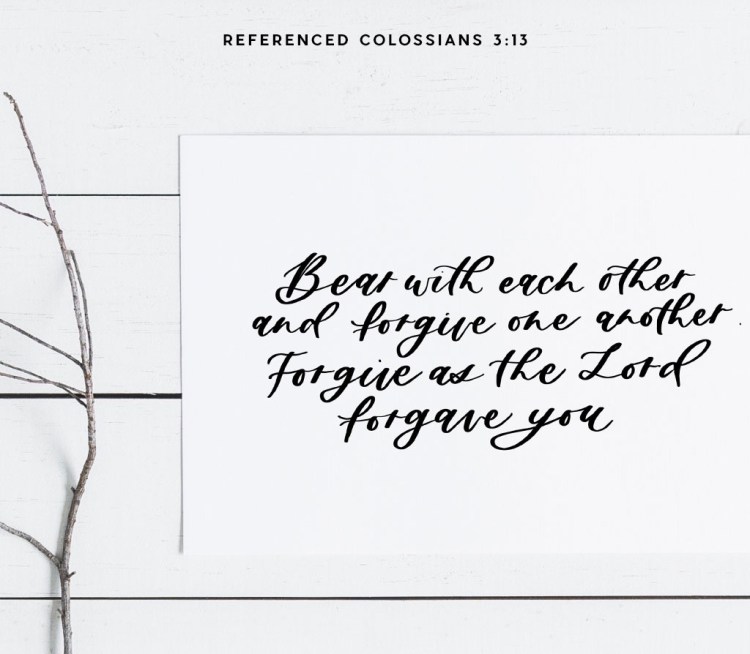 REFERENCED COLOSSIANS 3:13
Bear with each other
and forgive one another.
Forgive as the Lord
forgave you